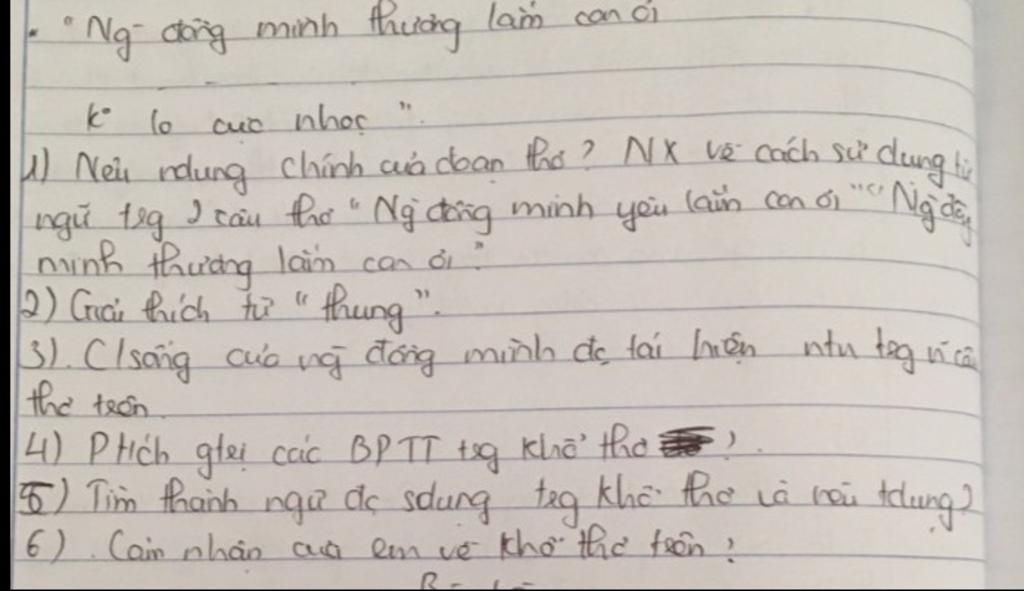 - "Ng- đồng mình thương lắm con ơi
k° lo cực nhọc".
1) Nêu ndung chính của đoạn thơ? NX về cách sử dụng từ
ngữ tsg 2 câu thơ "Ng đồng mình yêu lắm con ơi" "Ng đồng
mình thương lắm con ơi"
2) Giải thích từ "thung".
3). C/sống của ng đồng mình đc tái hiện ntn tsg n~ câu
thơ trên.
4) Ptích gtrị các BPTT tsg khổ thơ ?
5) Tìm thành ngữ đc sdụng tsg khổ thơ và nêu tdụng?
6). Cảm nhận của em về khổ thơ trên?